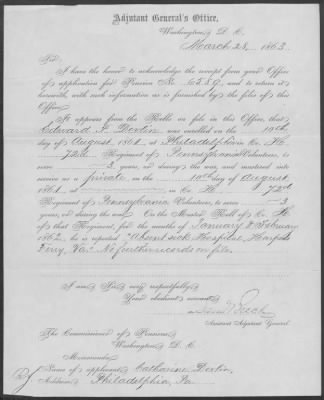 Adjutant General's Office,
Washington, D. C.
March 28, 1863.
Sir:
I have the honor to acknowledge the receipt from your Office
of application for Pension No. 6389, and to return it
herewith, with such information as is furnished by the files of this
Office.
It appears from the Rolls on file in this Office, that
Edward Devlin, was enrolled on the 10th
day of August, 1861, at Philadelphia in Co. H.
72nd Regiment of Pennsylvania Volunteers, to
serve 3 years, or during the war, and mustered into
service as a private, on the 10th day of August,
1861, at in Co. H. 72nd
Regiment of Pennsylvania Volunteers, to serve 3
years, or during the war. On the Muster Roll of Co. H.
of that Regiment, for the months of January & February
1862, he is reported "Absent sick Hospital Harpers
Ferry, Va." No further records on file.
I am Sir, very respectfully,
Your obedient servant,
Assistant Adjutant General.
The Commissioner of Pensions
Washington D. C.
Memoranda:
Name of applicant, Catharine Devlin,
Address, Philadelphia, Pa